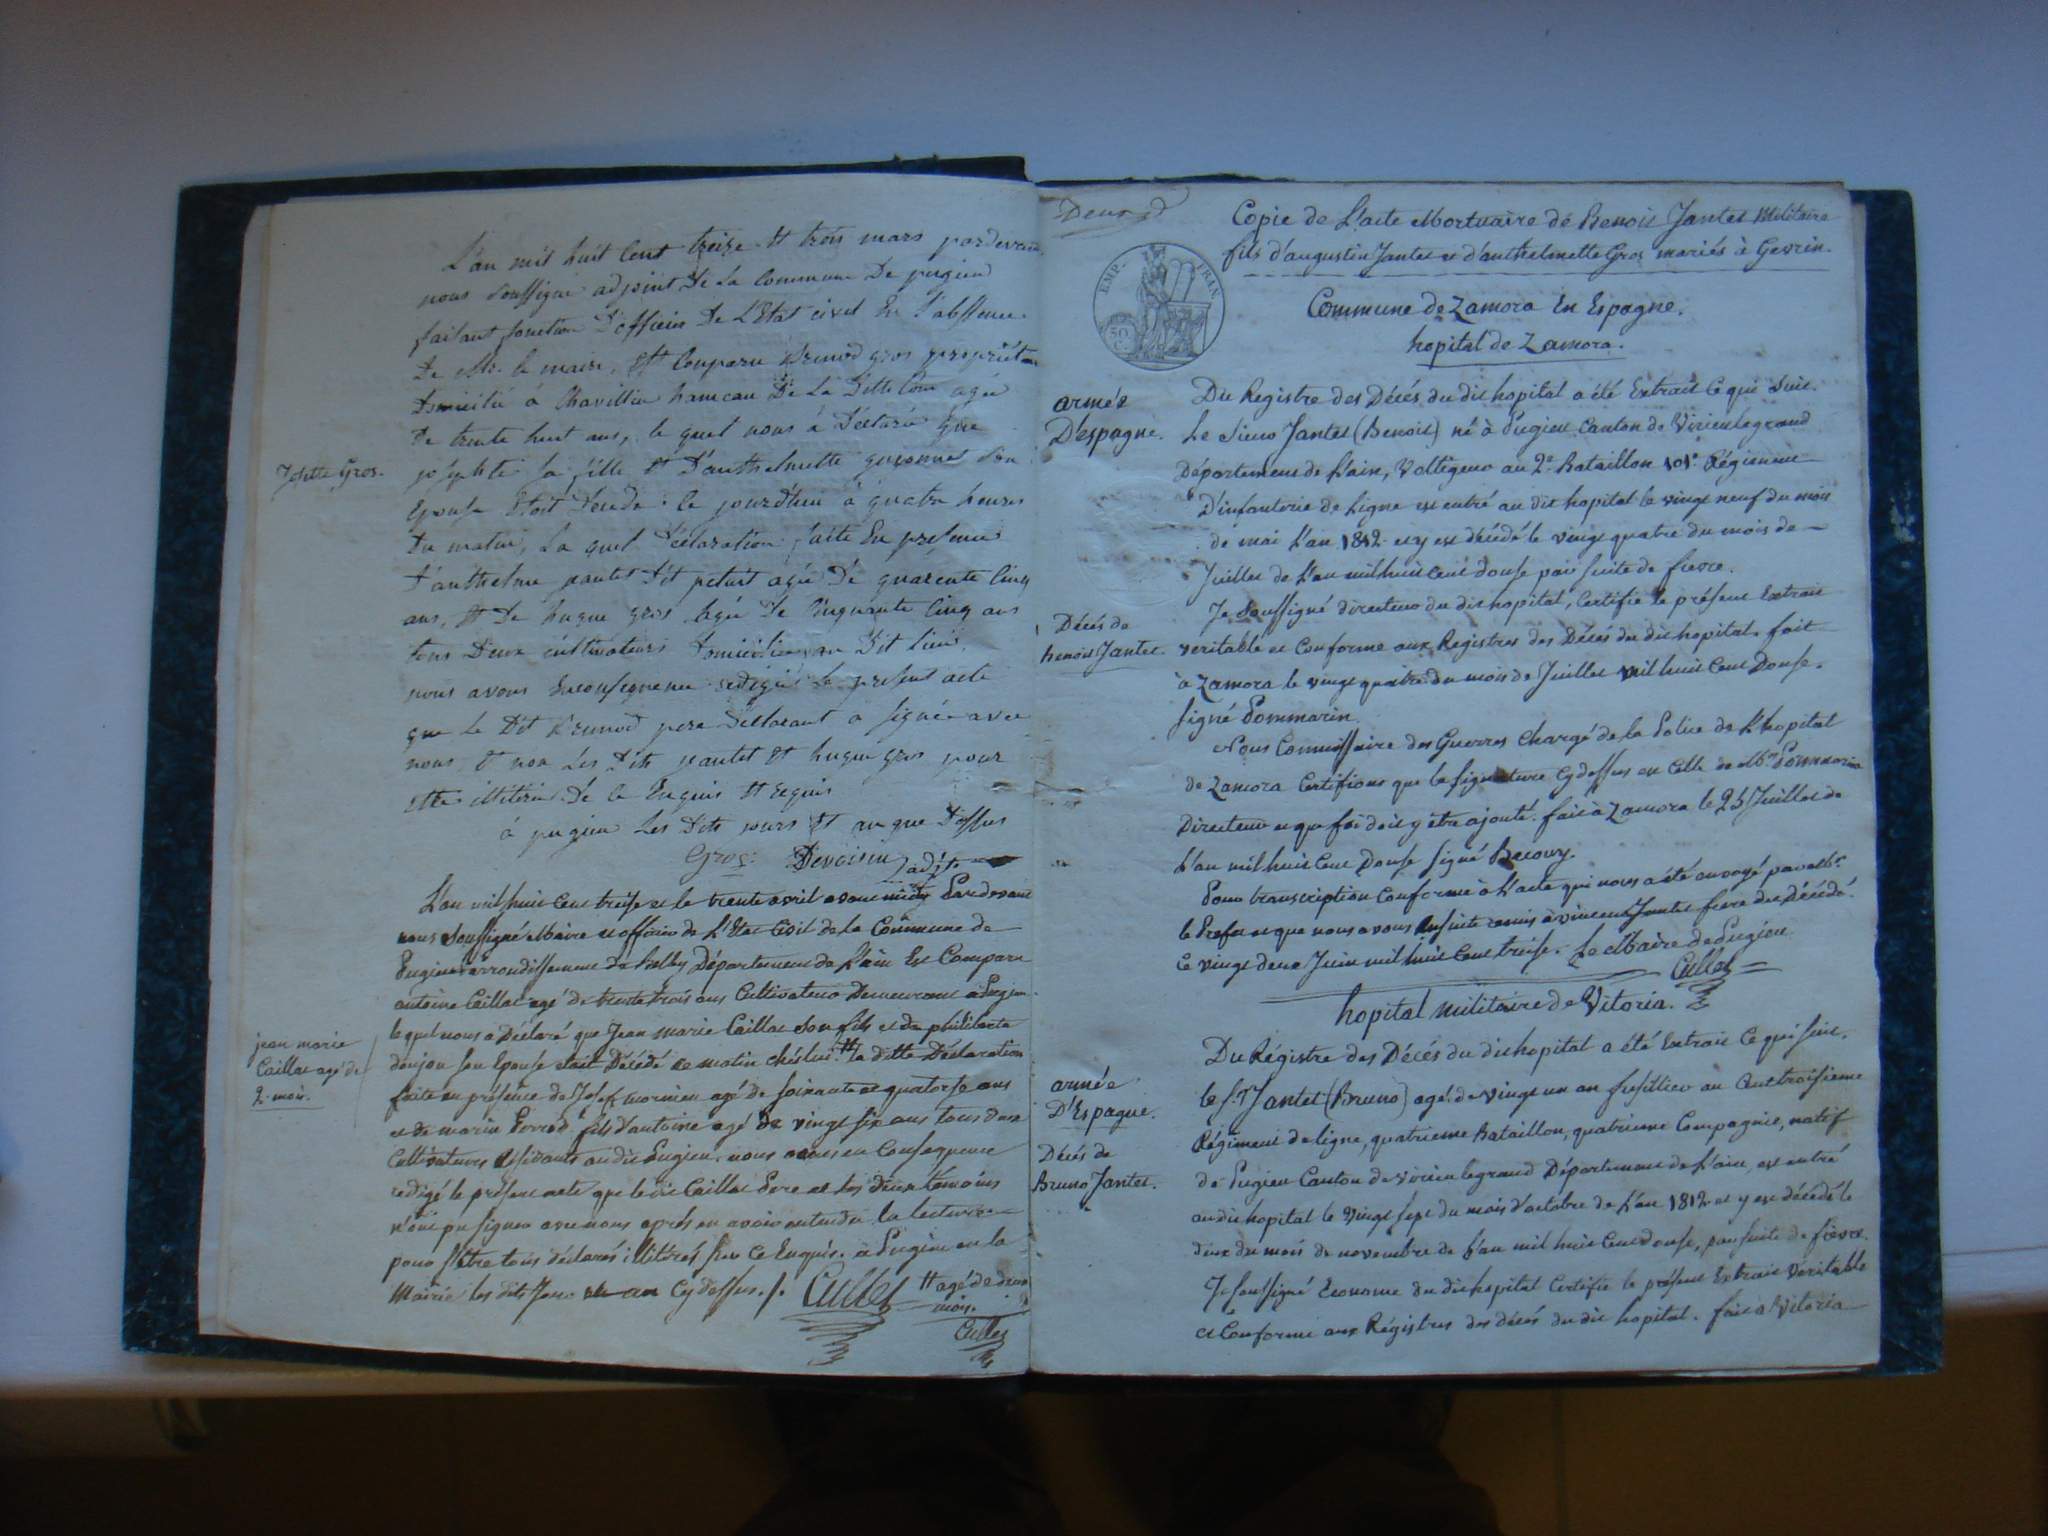 L'an mil huit Cent treize et trois mars pardevant
nous soussigné adjoint De La Commune De pugieu
faisant fonction D'officier De L'Etat civil En l'abssence
De Mr. le maire, Est Comparu Brunod gros propriétaire
Domicilié à Chavillieu hameau De La Ditte Com agée
De trente huit ans, le quel nous à Déclaré que
josephte sa fille et D'anthelmette son
Epouse Etoit Decedé ce jourd'hui à quatre heures
Du matin, La quel Déclaration faite En presence
D'anthelme jantet Dit agée De quarente Cinq
ans, et De hugue gros agée De Cinquante Cinq ans
tous Deux cultivateurs Domiciliés au Dit Lieu,
nous avons Enconsequence redigé Le present acte
que Le Dit Brunod pere Déclarant a signée avec
nous et non Les Dits jantet et hugue gros pour
etre illiterée De ce Enquis et requis
à pugieu Les Dits jours et an que Dessus
Josette Gros.
Gros Devoisin adjt
L'an mil huit Cent treise et le trente avril avant midy Pardevant
nous Soussigné Maire et officier de L'Etat Civil de la Commune de
Pugieu arrondissement de Belley Département de L'ain Est Comparu
antoine Caillat agé de trente trois ans Cultivateur Demeurant à Pugieu
le quel nous a Déclaré que Jean marie Caillat son fils et de philiberte
donjon son Epouse etait Décédé ce matin chés lui H la ditte Déclaration
faite en présence de Josef mornieu agé de soixante et quatorse ans
et de marin Perrod fils d'antoine agé de vingt six ans tous deux
Cultivateurs résidants audit Pugieu. nous avons en Consequence
redigé le présent acte que le dit Caillat Pere et les deux temoins
n'ont pu signer avec nous après en avoir entendu la lecture
pour s'etre tous déclarés illitérés sur ce Enquis. à Pugieu en la
Mairie les dits Jour et an Cy dessus. Cullet H agé de deux
mois.
Cullet
jean marie
Caillat agé de
2. mois.
Copie de L'acte Mortuaire de Benoit Jantet Militaire
fils d'augustin Jantet et d'anthelmette Gros mariés à Gevrin.
EMP. FRAN.
50
Commune de Zamora En Espagne.
hopital de Zamora.
armée
D'espagne.
Du Registre des Décés du dit hopital a été Extrait Ce qui suit.
Le Sieur Jantet (Benoit) né à Pugieu Canton de Virieu legrand
Département de L'ain, Voltigeur au 2e. Bataillon 101e. Régiment
D'infanterie de Ligne est entré au dit hopital le vingt neuf du mois
de mai L'an 1812 et y est décédé le vingt quatre du mois de
Juillet de L'an mil huit Cent douse par suite de fievre.
Je Soussigné directeur du dit hopital, Certifie le présent Extrait
Décés de
benoit Jantet.
veritable et Conforme aux Registres des Décés du dit hopital. fait
à Zamora le vingt quatre du mois de Juillet mil huit Cent Douse.
signé Pommarin
Nous Commissaire des Guerres Chargé de la Police de L'hopital
de Zamora Certifions que la signature Cy dessus est Celle de Mr. Pommarin
Directeur et que foi doit y etre ajouté. fait à Zamora le 25 Juillet de
L'an mil huit Cent Douse signé
Pour transcription Conforme à L'acte qui nous a été envoyé par Mr.
le Prefet et que nous avons Ensuite remis à vincent Jantet frere du Décédé.
Ce vingt deux Juin mil huit Cent treise. Le Maire de Pugieu
Cullet
hopital militaire de Vitoria.
Du Régistre des Décés du dit hopital a été Extrait Ce qui suit.
armée
D'Espagne.
le Sr. Jantet (Bruno) agé de vingt un an fusillier au Cent troisieme
Régiment de ligne, quatrieme Bataillon, quatrieme Compagnie, natif
Décés de
Bruno Jantet.
de Pugieu Canton de virieu legrand Département de L'ain, est entré
au dit hopital le vingt sept du mois d'octobre de L'an 1812 et y est décédé le
deux du mois de novembre de L'an mil huit Cent douse, par suite de fievre.
Je soussigné Econome du dit hopital Certifie le présent Extrait Veritable
et Conforme aux Régistres des décés du dit hopital. fait à Vitoria